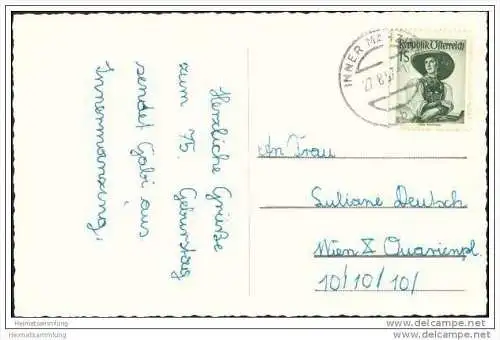 Herzliche Grüße
zum 75. Geburtstag
sendet Gabi aus
Innermanzing.
INNER MANZ
27.8.57
Republik Österreich
1S
An Frau
Juliane Deutsch
Wien X Quarinpl.
10/10/10/
Heimatsammlung
Heimatsammlung.com
delcampe.net